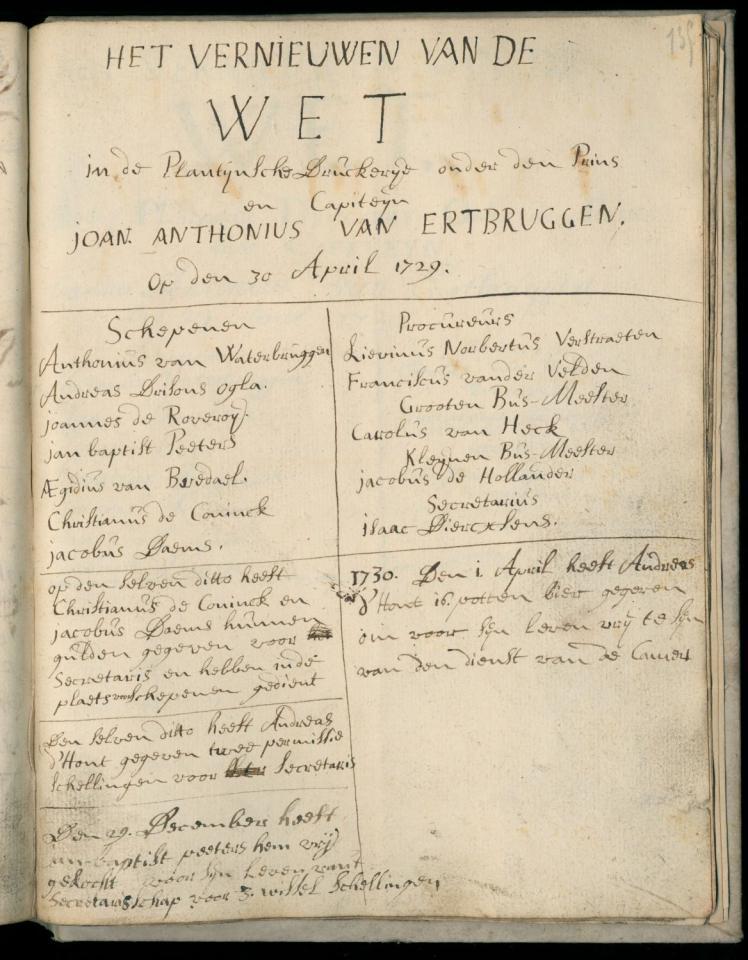 135
HET VERNIEUWEN VAN DE
WET
in de Plantynsche Druckerye onder den Prins
en Capiteyn
JOAN. ANTHONIUS VAN ERTBRUGGEN.
Op den 30 April 1729.
Schepenen
Anthonius van Waterbruggen
Andreas Drisons ogla.
joannes de Roveroy.
jan baptist Peeters
Ægidius van Bredael.
Christianus de Coninck
jacobus Daems.
op den selven ditto heeft
Christianus de Coninck en
jacobus Daems hunnen
gulden gegeven voor
Secretaris en hebben inde
plaets van Schepenen gedient
Den selven ditto heeft Andreas
d'Hont gegeven twee permissie
schellingen voor Secretaris
Den 29. December heeft
jan-baptist peeters hem vrij
gekocht voor syn leven vant
Secretarisschap voor 3. wissel schellingen
Procureurs
Lievinus Norbertus Verstraeten
Franciscus vander Velden
Grooten Bus-Meester
Carolus van Heck
Kleynen Bus-Meester
jacobus de Hollander
Secretarius
isaac Diercxsens.
1730. Den 1. April heeft Andreas
d'Hont 16 potten bier gegeven
om voor syn leven vrij te syn
van den dienst van de Camer